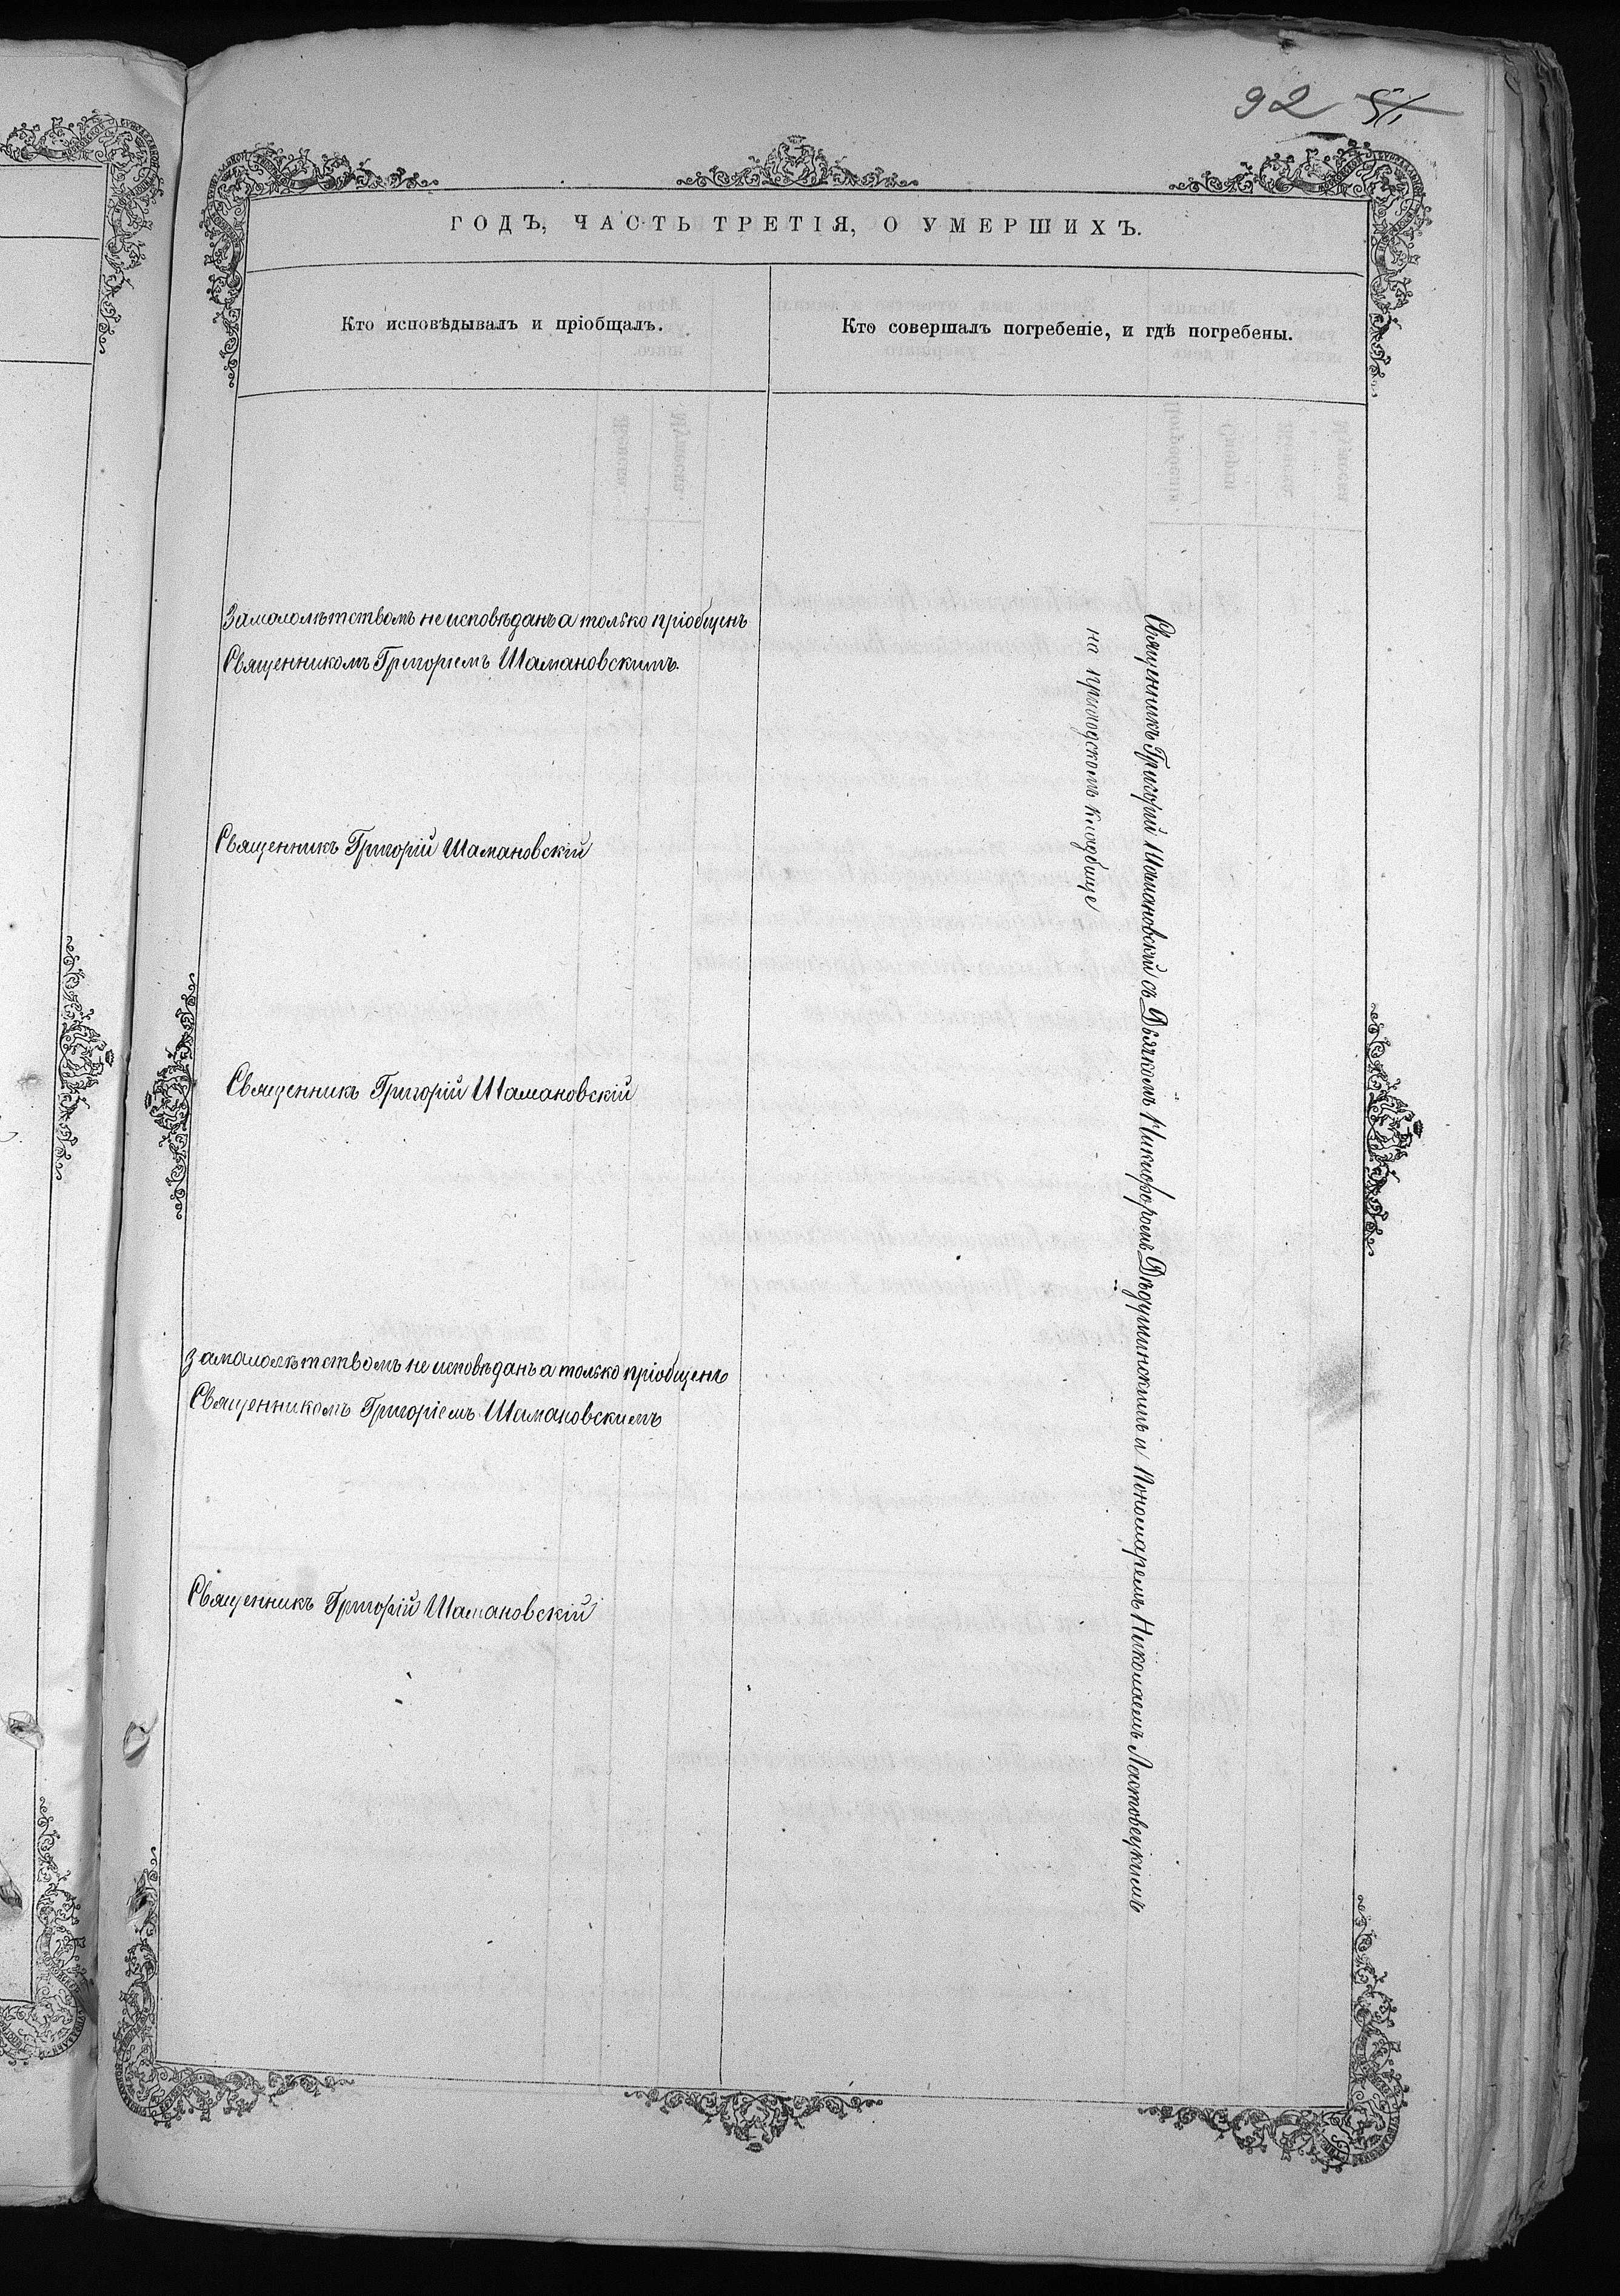 92 51
ГОДЪ, ЧАСТЬ ТРЕТІЯ, О УМЕРШИХЪ.
Кто исповѣдывалъ и пріобщалъ.
Кто совершалъ погребеніе, и гдѣ погребены.
За малолѣтствомъ не исповѣданъ а только пріобщенъ
Священникомъ Григоріемъ Шамановскимъ.
Священникъ Григорій Шамановскій
Священникъ Григорій Шамановскій
За малолѣтствомъ не исповѣданъ а только пріобщенъ
Священникомъ Григоріемъ Шамановскимъ
Священникъ Григорій Шамановскій
Священникъ Григорій Шамановскій съ Дьячкомъ Никифоромъ и Пономаремъ Николаемъ Ластовецкимъ
на приходскомъ кладбище